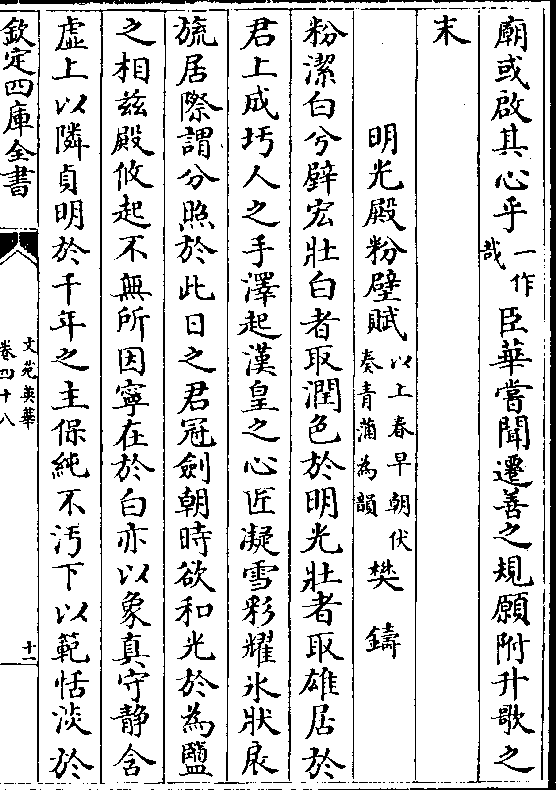 廟或啟其心乎一作哉臣華嘗聞遷善之規願附升歌之
末
明光殿粉壁賦以上春早朝伏奏青蒲為韻樊鑄
粉潔白兮壁宏壯白者取潤色於明光壯者取雄居於
君上成圬人之手澤起漢皇之心匠凝雪彩耀氷狀扆
旒居際謂分照於此日之君冠劍朝時欲和光於為鹽
之相茲殿攸起不無所因寧在於白亦以象真守静含
虛上以隣貞明於千年之主保純不汚下以範恬淡於
欽定四庫全書
文苑英華
卷四十八
十一